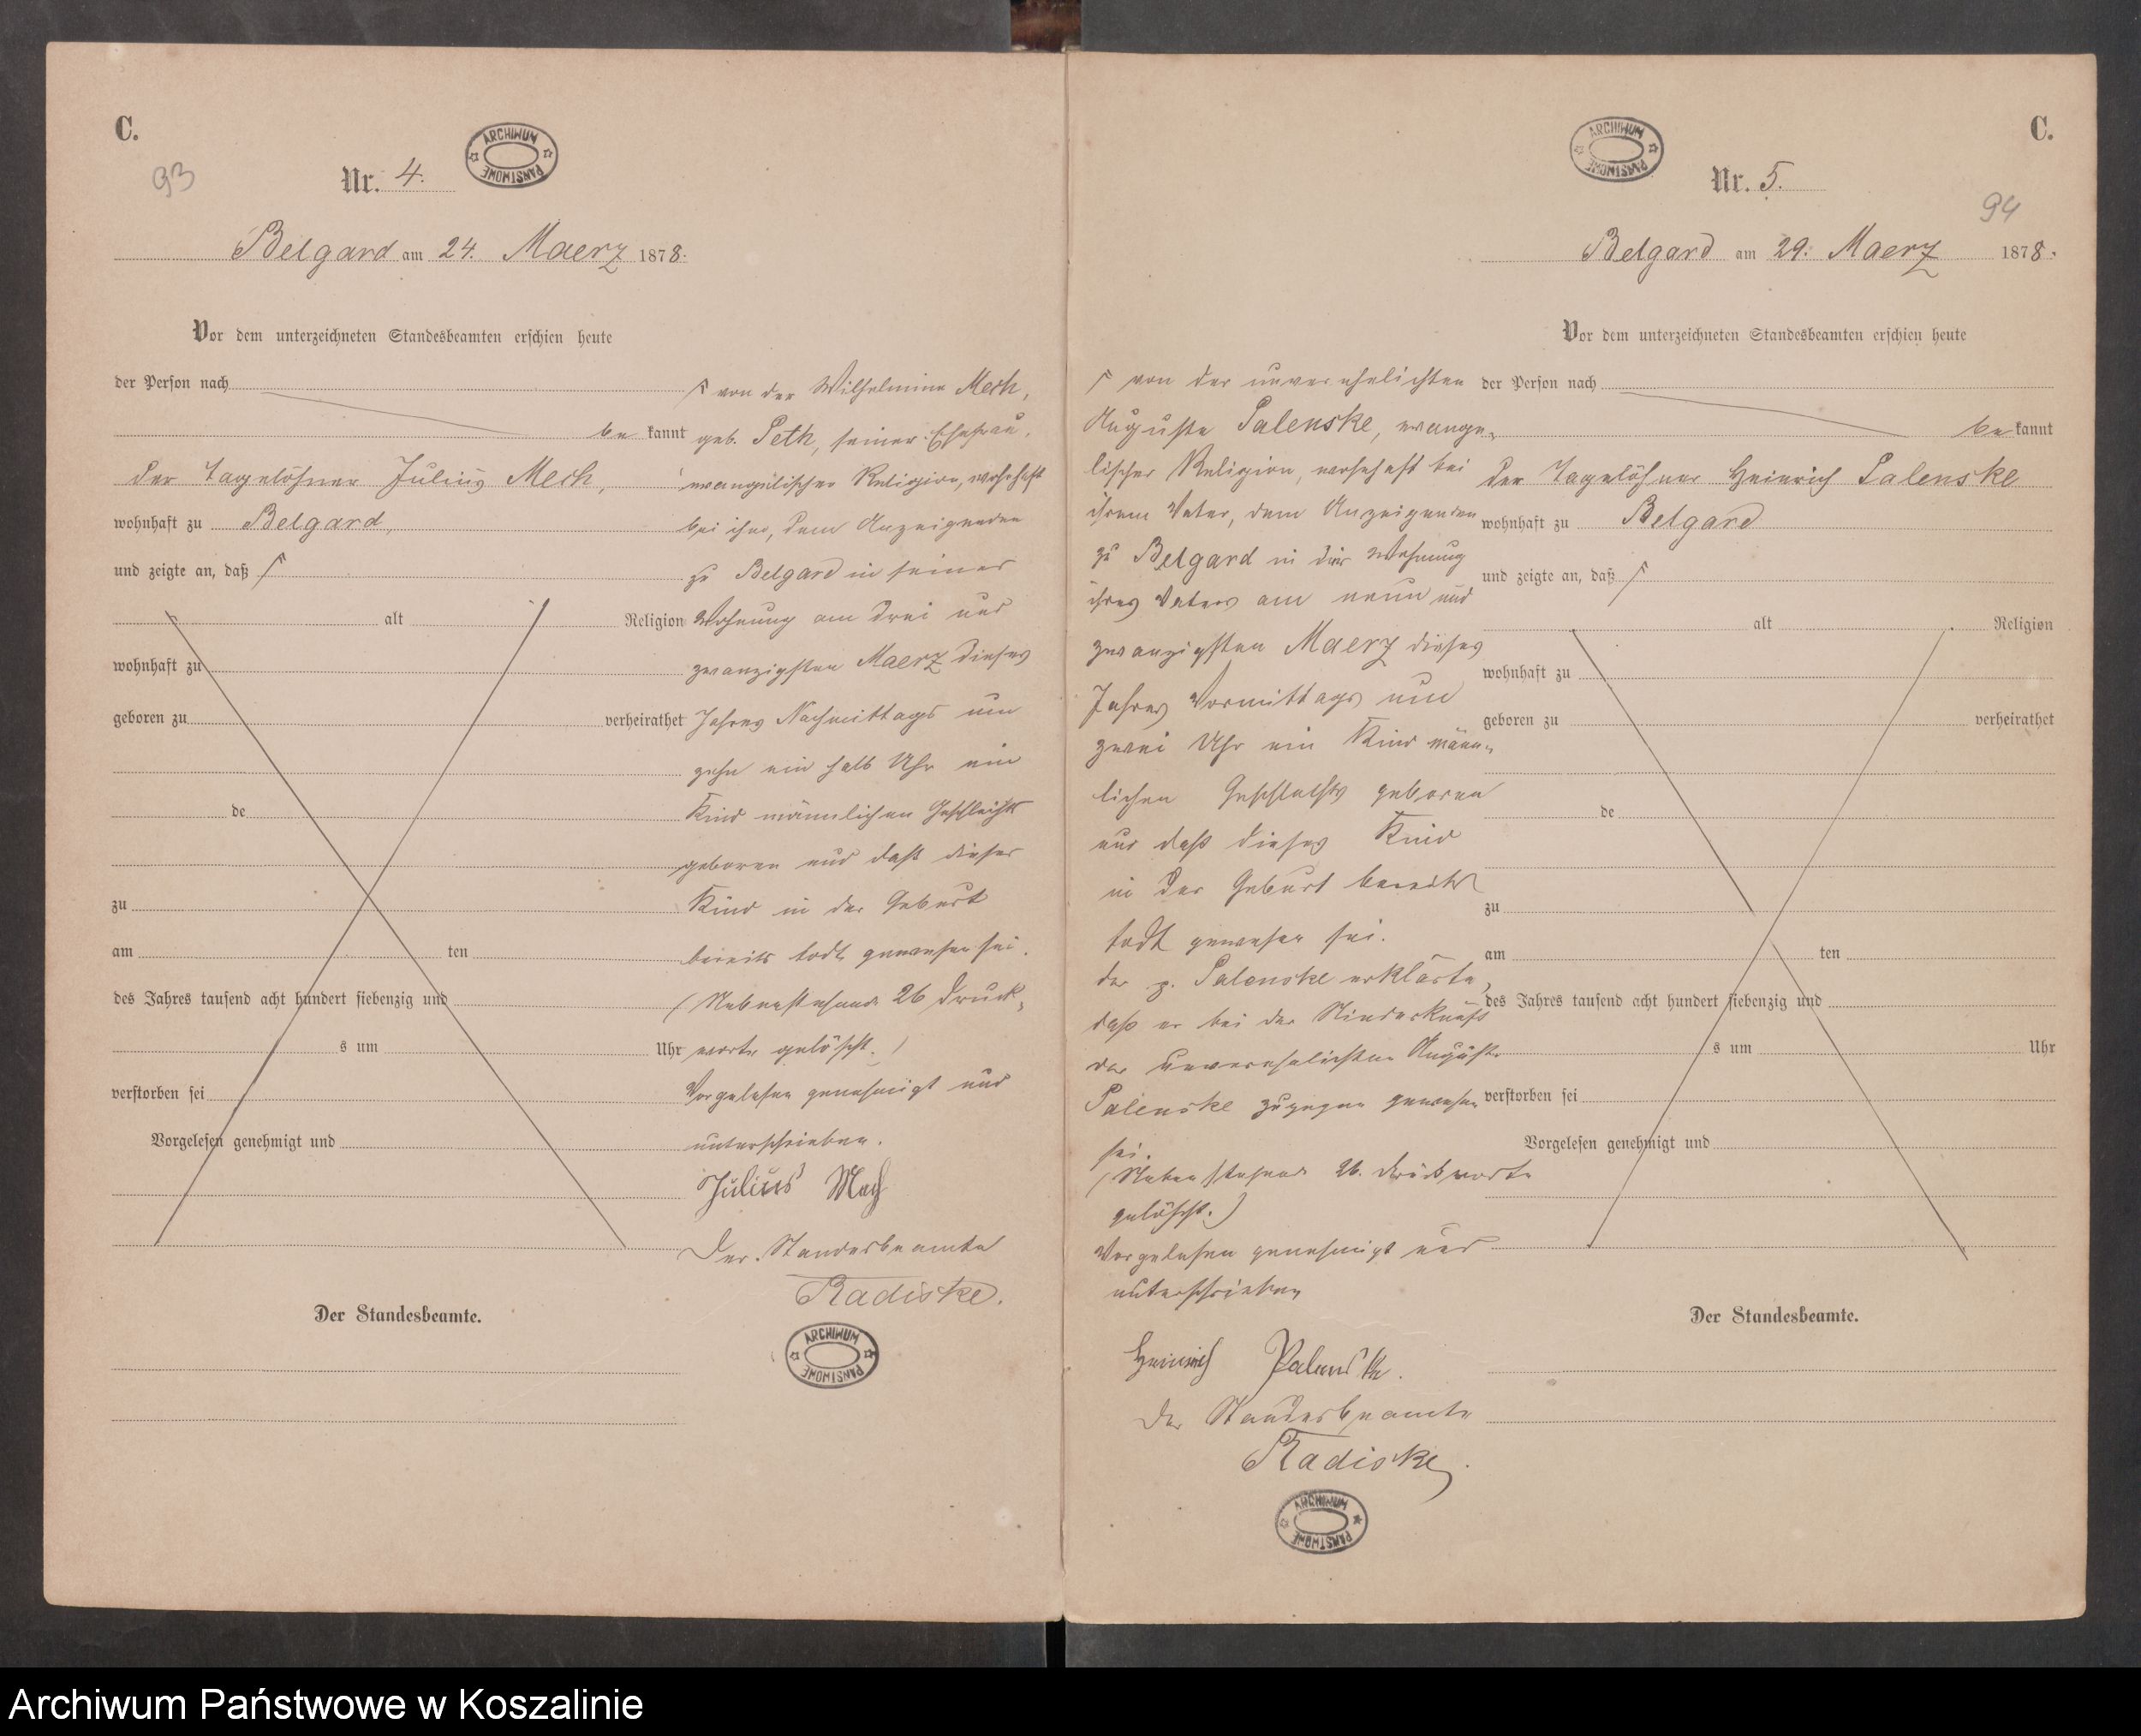 C.
93
Nr. 4.
ARCHIWUM PAŃSTWOWE
Belgard am 24. Maerz 1878.
Vor dem unterzeichneten Standesbeamten erschien heute
der Person nach
be kannt
der Tagelöhner Julius Mech,
wohnhaft zu Belgard,
und zeigte an, daß
alt Religion
wohnhaft zu
geboren zu verheirathet
de
zu
am ten
des Jahres tausend acht hundert siebenzig und
s um Uhr
verstorben sei
Vorgelesen genehmigt und
Der Standesbeamte.
von der Wilhelmine Mech,
geb. Peth, seiner Ehefrau,
evangelischer Religion, wohnhaft
bei ihm, dem Anzeigenden
zu Belgard in seiner
Wohnung am drei und
zwanzigsten Maerz dieses
Jahres Nachmittags um
zehn ein halb Uhr ein
Kind männlichen Geschlechts
geboren und daß dieses
Kind in der Geburt
bereits todt gewesen sei.
(Nebenstehende 26 Druck-
worte gelöscht.)
Vorgelesen genehmigt und
unterschrieben.
Julius Mech
Der Standesbeamte
Radiske.
ARCHIWUM PAŃSTWOWE
C.
ARCHIWUM PAŃSTWOWE
Nr. 5.
94
Belgard am 29. Maerz 1878.
Vor dem unterzeichneten Standesbeamten erschien heute
der Person nach
be kannt
der Tagelöhner Heinrich Palenske
wohnhaft zu Belgard
und zeigte an, daß
alt Religion
wohnhaft zu
geboren zu verheirathet
de
zu
am ten
des Jahres tausend acht hundert siebenzig und
s um Uhr
verstorben sei
Vorgelesen genehmigt und
Der Standesbeamte.
von der unverehelichten
Auguste Palenske, evange-
lischer Religion, wohnhaft bei
ihrem Vater, dem Anzeigenden
zu Belgard in der Wohnung
ihres Vaters am neun und
zwanzigsten Maerz dieses
Jahres Vormittags um
zwei Uhr ein Kind männ-
lichen Geschlechts geboren
und daß dieses Kind
in der Geburt bereits
todt gewesen sei.
der p. Palenske erklärte,
daß er bei der Niederkunft
der unverehelichten Auguste
Palenske zugegen gewesen
sei.
(Nebenstehende 26. Druckworte
gelöscht.)
Vorgelesen genehmigt und
unterschrieben
Heinrich Palenske.
Der Standesbeamte
Radiske.
ARCHIWUM PAŃSTWOWE
Archiwum Państwowe w Koszalinie